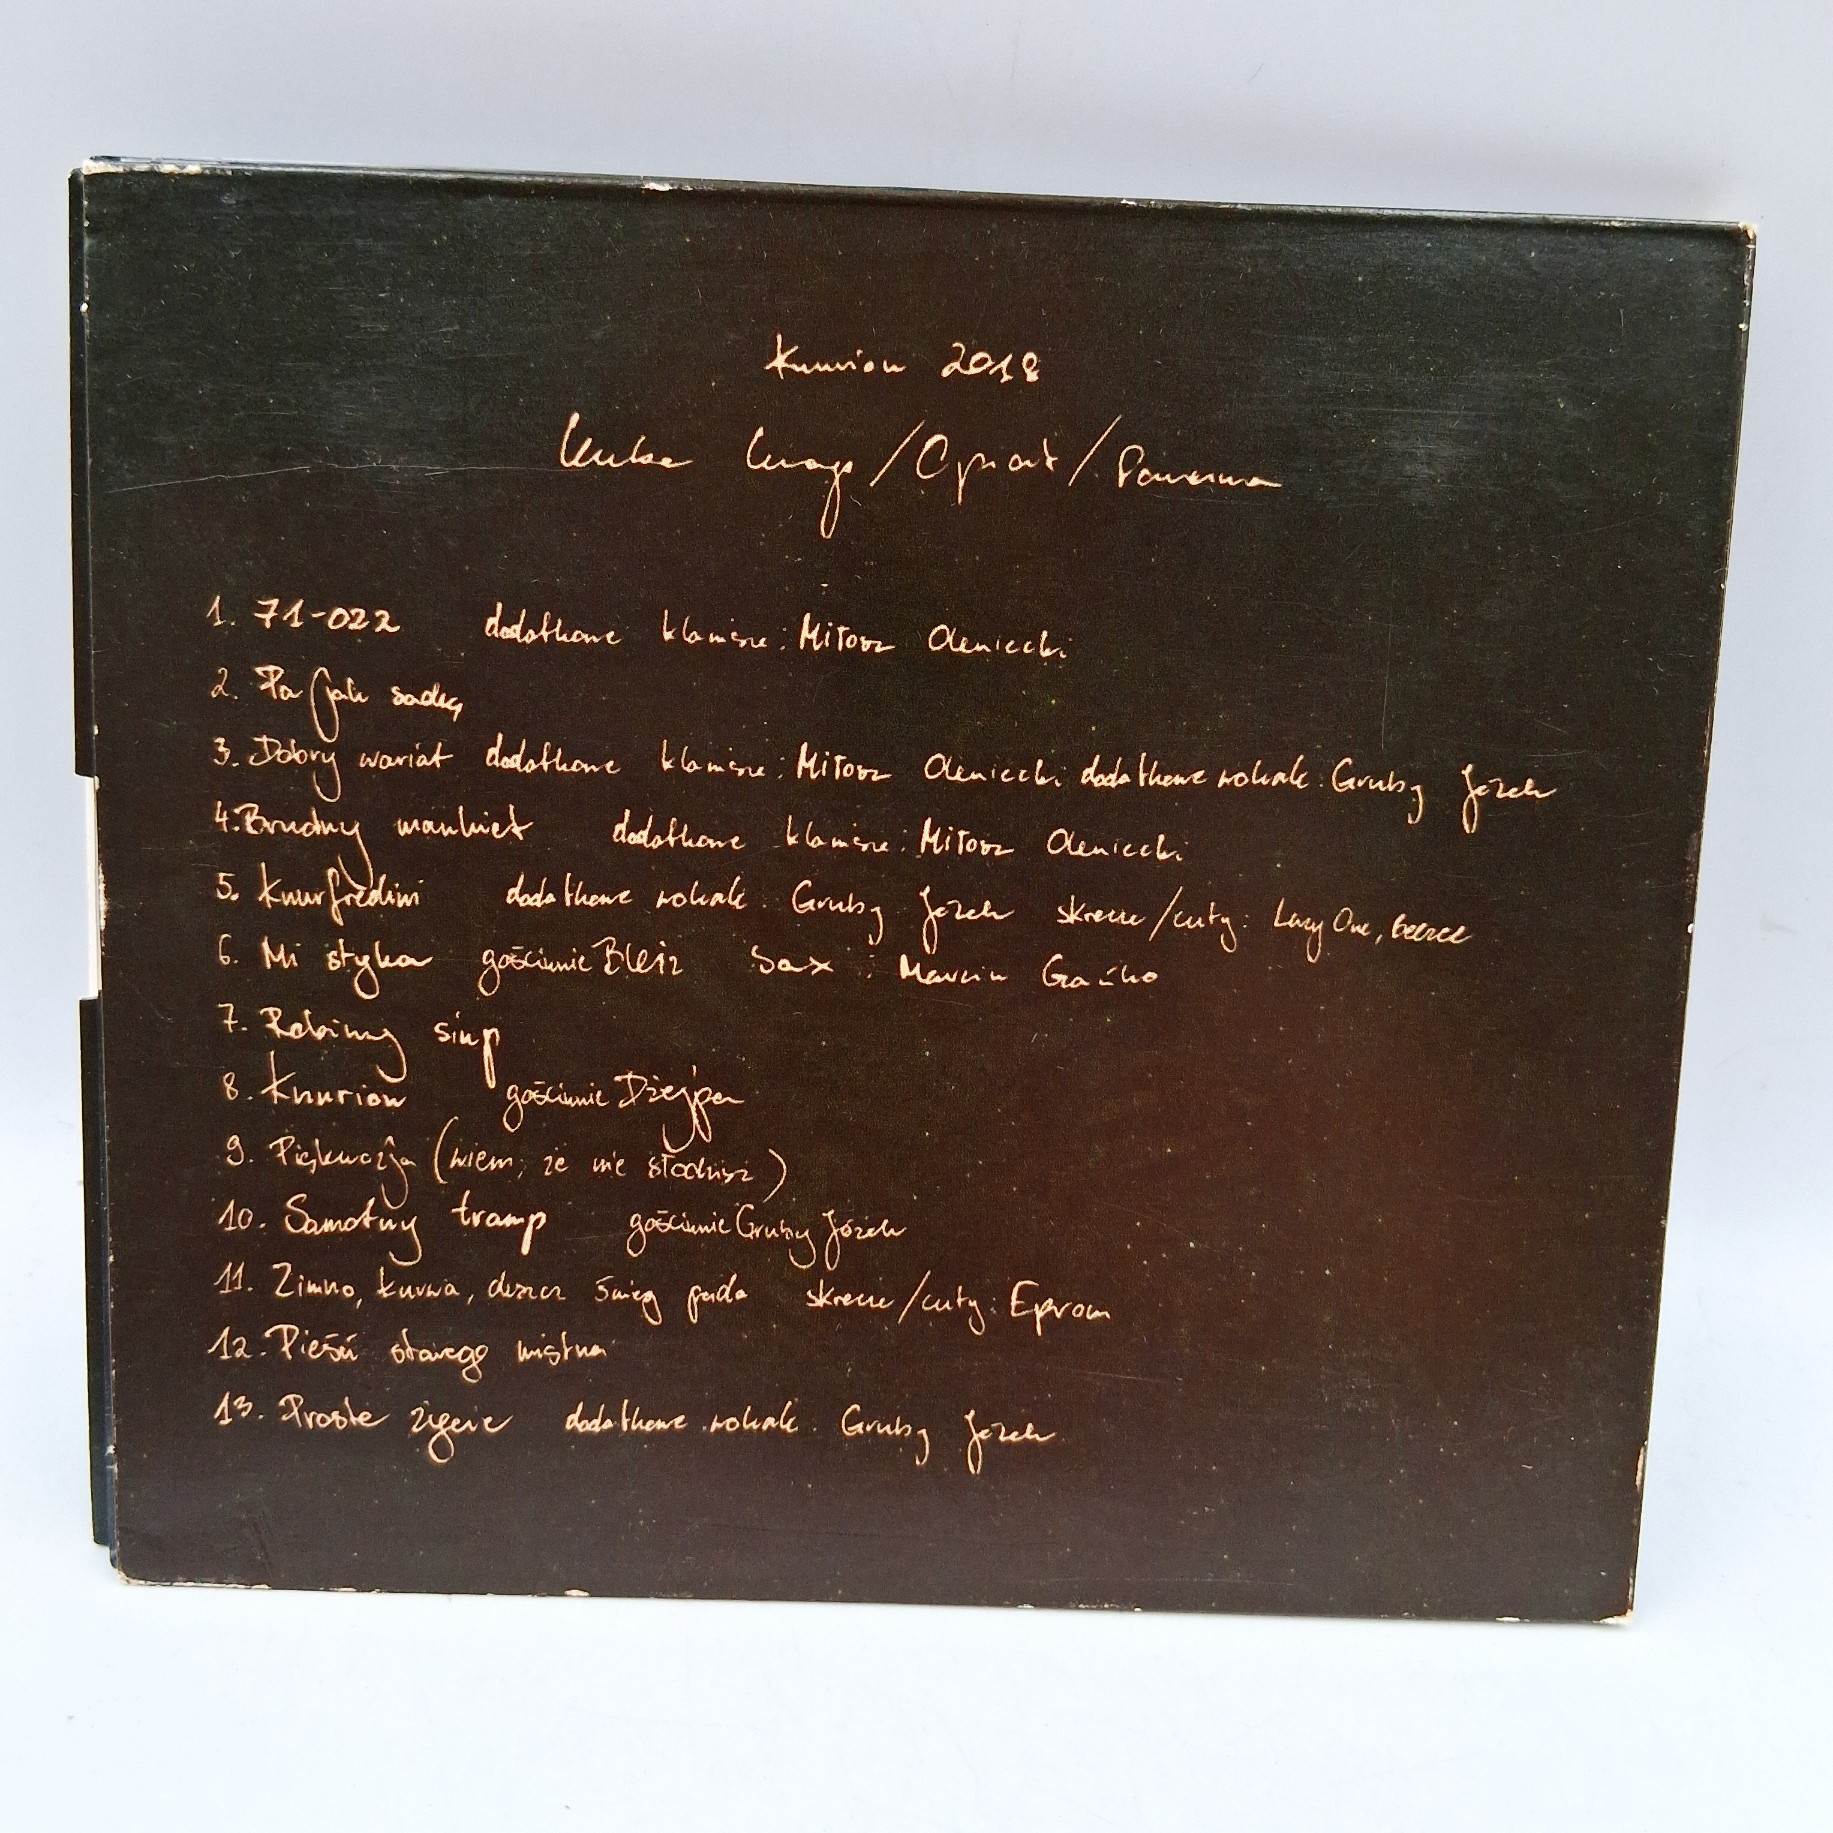 Knurion 2018
Kuba Knap / Opiat / Pawuma
1. 71-022 dodatkowe klawisze: Miłosz Oleniecki
2. Pa jak sadzą
3. Dobry wariat dodatkowe klawisze: Miłosz Oleniecki dodatkowe wokale: Gruby Józek
4. Brudny mankiet dodatkowe klawisze: Miłosz Oleniecki
5. Knurfredini dodatkowe wokale: Gruby Józek skrecze/cuty: Lazy One, beezee
6. Mi styka gościnnie Bleiz Sax: Marcin Gańko
7. Robimy siup
8. Knurion gościnnie Dżejpa
9. (wiem, że nie słodzisz)
10. Samotny tramp gościnnie Gruby Józek
11. Zimno, kurwa, deszcz śnieg pada skrecze/cuty: Eprom
12. Pieśń starego mistrza
13. Proste życie dodatkowe wokale: Gruby Józek